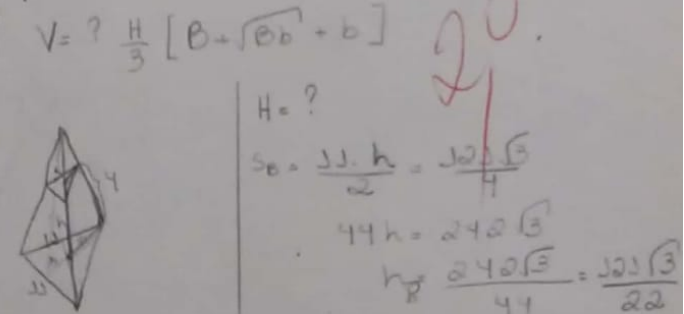 V= ? H/3 [B+√Bb + b]
H= ?
S_B = 11.h/2 = 121√3/4
44h = 242√3
h_B = 242√3/44 = 121√3/22
4
11